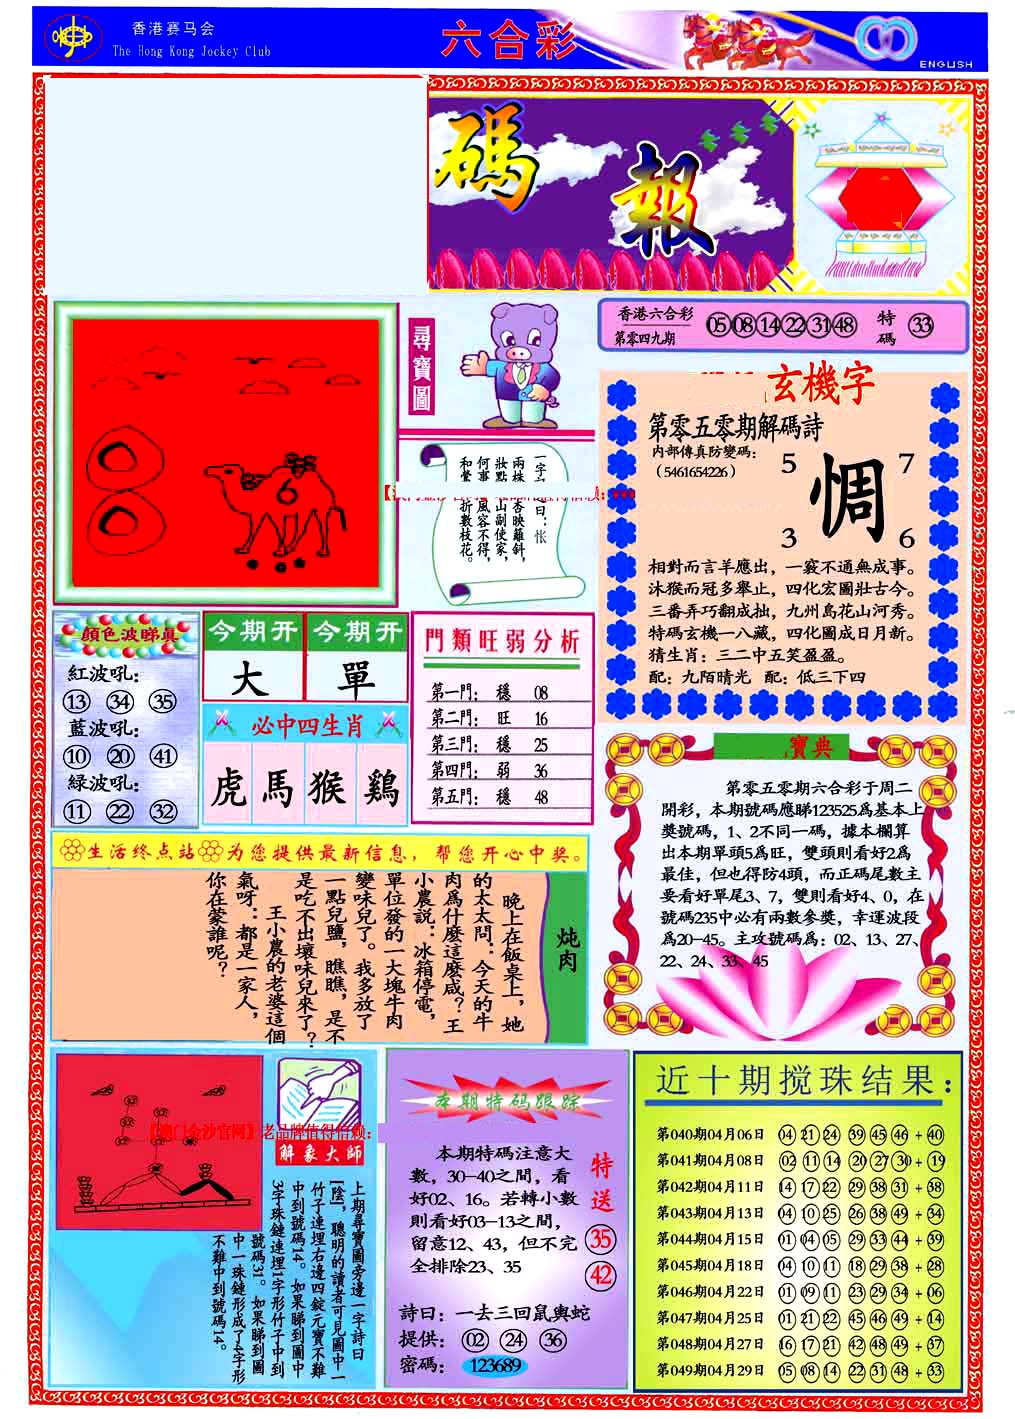 香港赛马会
The Hong Kong Jockey Club
六合彩
ENGLISH
碼報
香港六合彩
第零四九期
05 08 14 22 31 48 特碼 33
尋寶圖
6
玄機字
第零五零期解碼詩
内部傳真防變碼：
（5461654226）
5 7
惆
3 6
相對而言羊應出，一竅不通無成事。
沐猴而冠多舉止，四化宏圖壯古今。
三番弄巧翻成拙，九州島花山河秀。
特碼玄機一八藏，四化圖成日月新。
猜生肖：三二中五笑盈盈。
配：九陌晴光 配：低三下四
顔色波睇真
紅波吼：
13 34 35
藍波吼：
10 20 41
緑波吼：
11 22 32
今期開
大
今期開
單
必中四生肖
虎 馬 猴 鷄
門類旺弱分析
第一門： 穩 08
第二門： 旺 16
第三門： 穩 25
第四門： 弱 36
第五門： 穩 48
寶典
第零五零期六合彩于周二
開彩，本期號碼應睇123525爲基本上
奬號碼，1、2不同一碼，據本欄算
出本期單頭5爲旺，雙頭則看好2爲
最佳，但也得防4頭，而正碼尾數主
要看好單尾3、7，雙則看好4、0，在
號碼235中必有兩數參奬，幸運波段
爲20-45。主攻號碼爲：02、13、27、
22、24、33、45
生活终点站 为您提供最新信息，帮您开心中奖。
炖肉
晚上在飯桌上，她
的太太問：今天的牛
肉爲什麽這麽咸？王
小農説：冰箱停電，
單位發的一大塊牛肉
變味兒了。我多放了
一點兒鹽，瞧瞧，是不
是吃不出壞味兒來了？
王小農的老婆這個
氣呀：都是一家人，
你在蒙誰呢？
解象大師
上期尋寶圖旁邊一字詩曰
[陰]，聰明的讀者可見圖中一
竹子連埋右邊四錠元寶不難
中到號碼14。如果睇到圖中
3字珠鏈連埋1字形竹子中到
號碼31。如果睇到圖
中一珠鏈形成了4字形
不難中到號碼14。
本期特码跟踪
本期特碼注意大
數，30-40之間，看
好02、16。若轉小數
則看好03-13之間，
留意12、43，但不完
全排除23、35
特送
35
42
詩曰：一去三回鼠輿蛇
提供： 02 24 36
密碼： 123689
近十期搅珠结果：
第040期04月06日 04 21 24 39 45 46 + 40
第041期04月08日 02 11 14 20 27 30 + 19
第042期04月11日 14 17 22 29 38 31 + 38
第043期04月13日 04 10 25 26 38 49 + 34
第044期04月15日 01 04 05 29 33 44 + 39
第045期04月18日 04 10 11 18 29 38 + 28
第046期04月22日 01 09 11 23 29 34 + 06
第047期04月25日 01 21 22 45 46 49 + 14
第048期04月27日 16 17 21 42 48 49 + 37
第049期04月29日 05 08 14 22 31 48 + 33